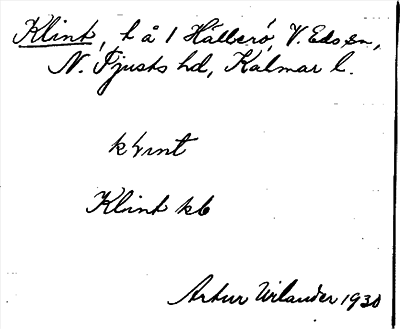 Klint, t å 1 Hällerö, V. Eds sn,
N. Tjusts hd, Kalmar l.
klint
Klint kb
Artur Wilander 1930